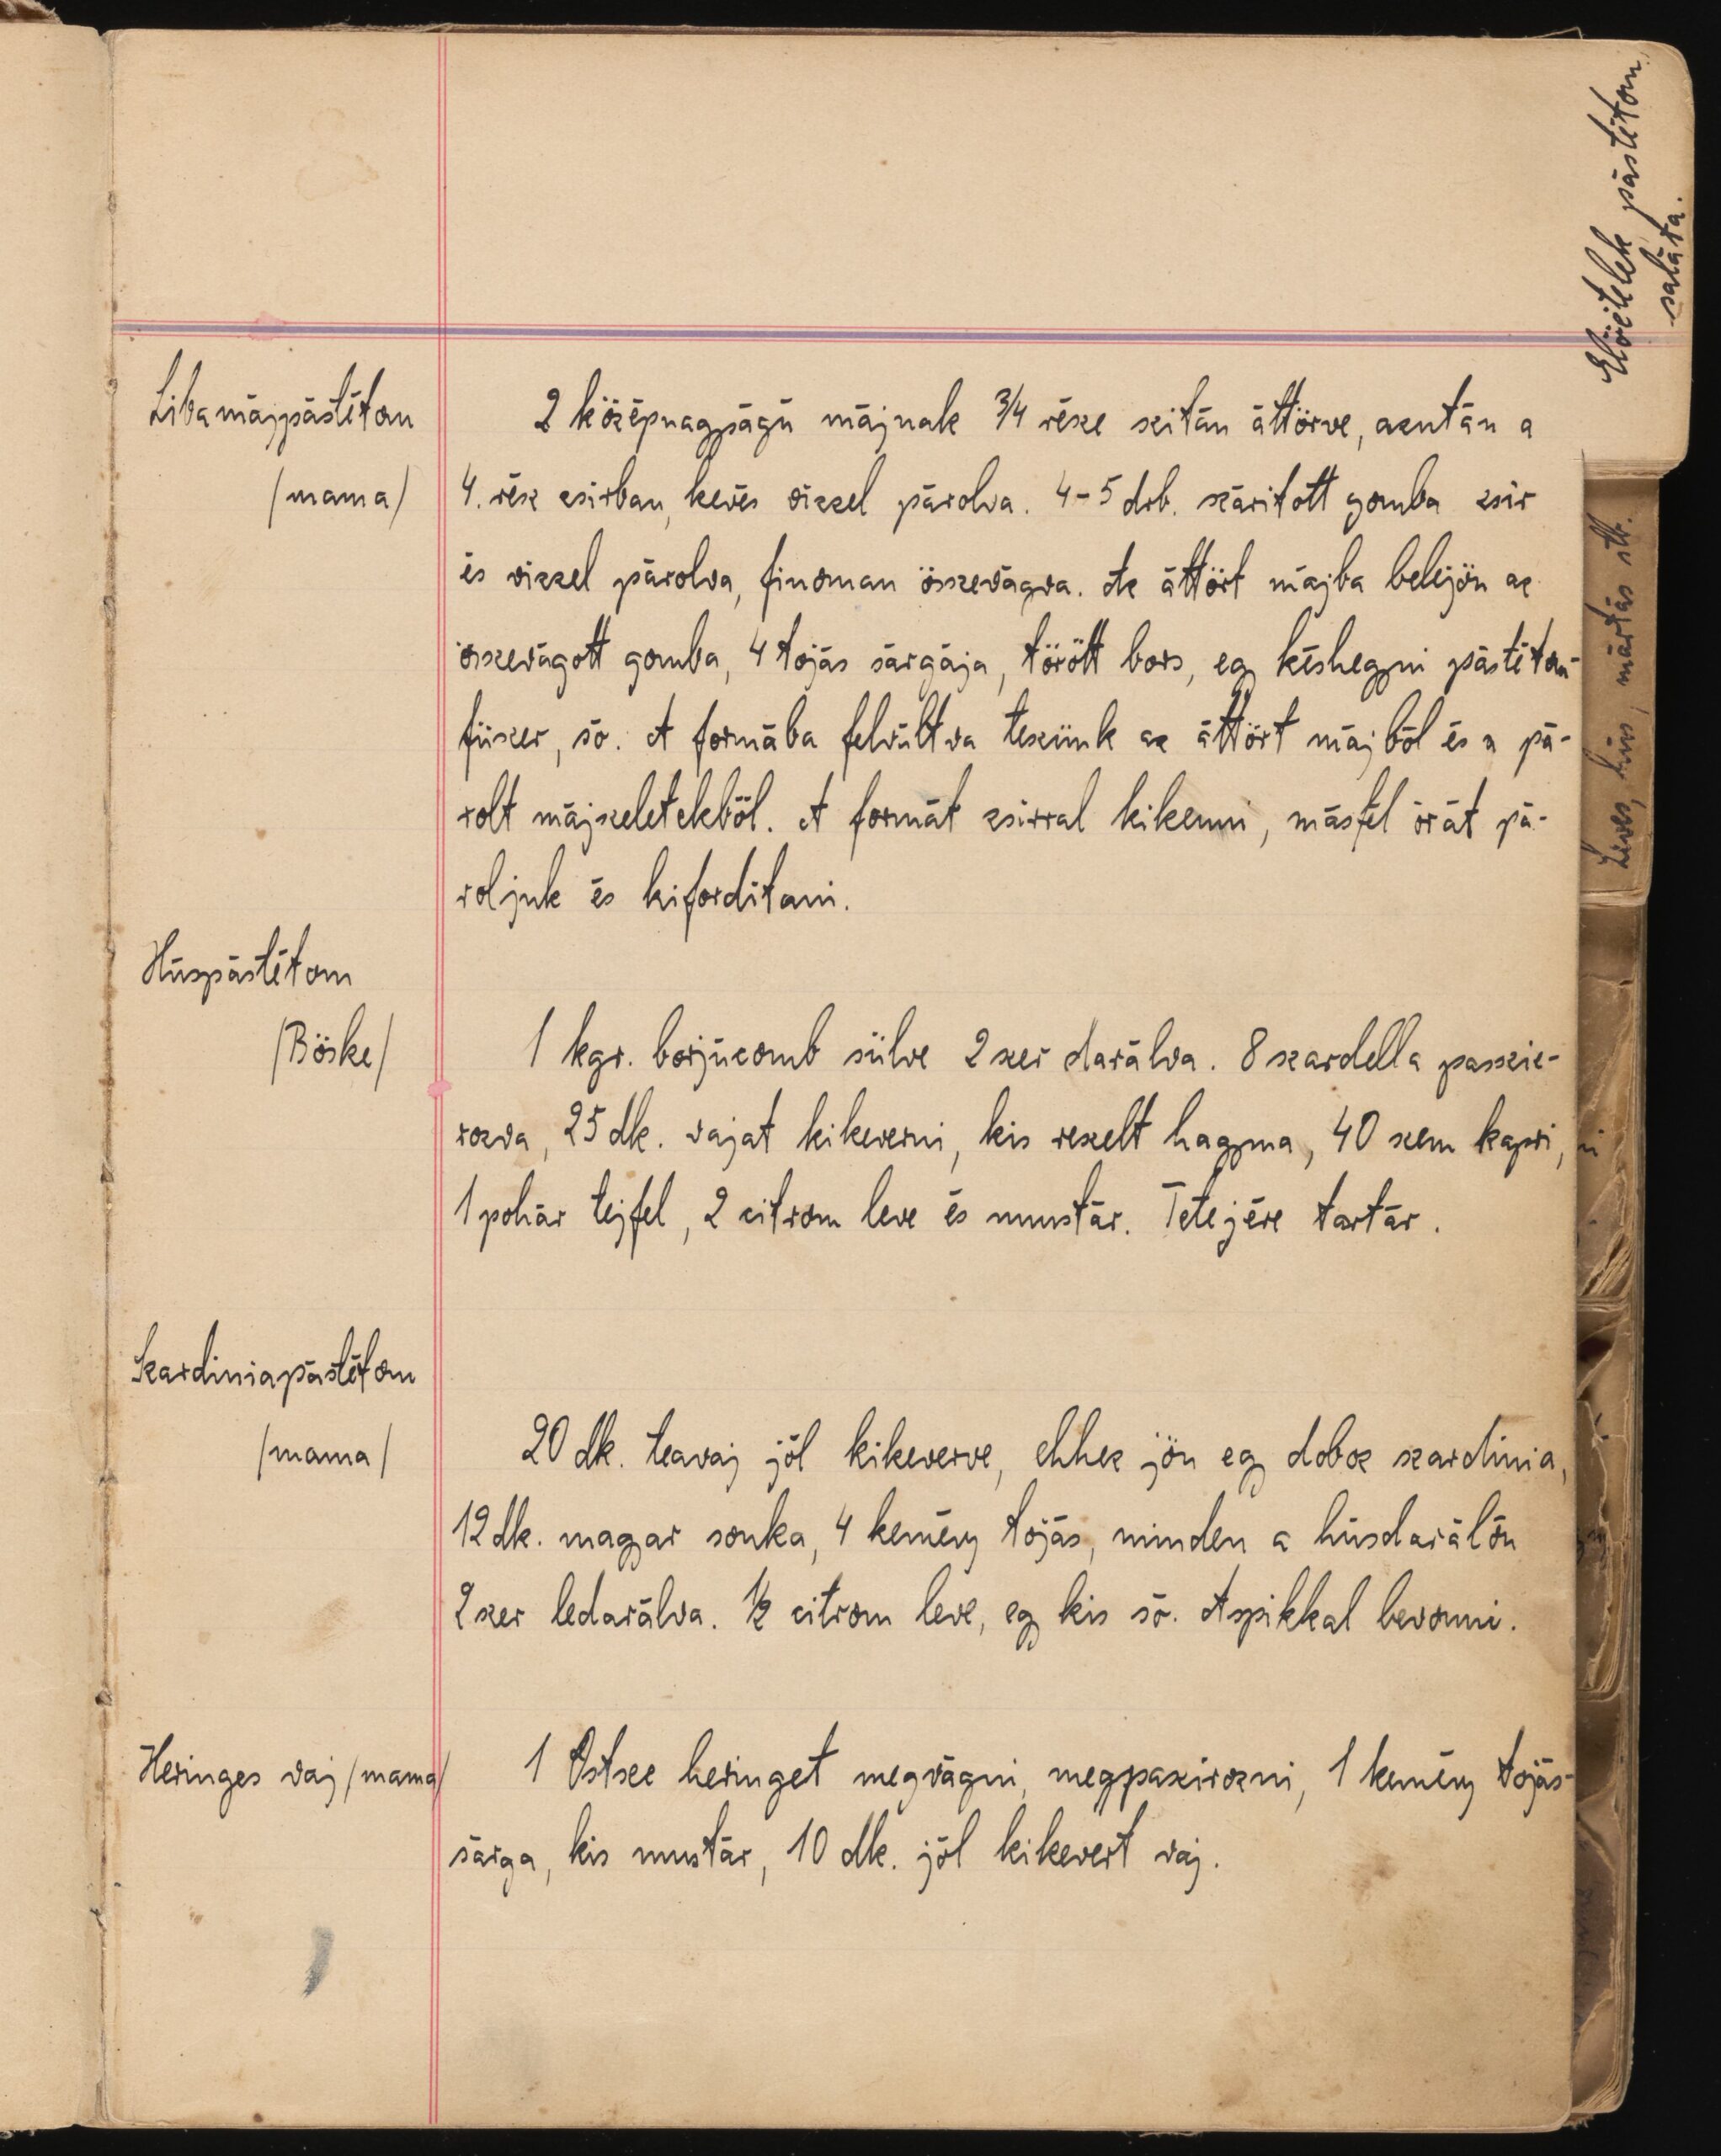 Előételek, pástétom,
saláta.
Libamájpástétom
/mama/
2 középnagyságú májnak 3/4 része szitán áttörve, azután a
4. rész zsirban, kevés vizzel párolva. 4-5 drb. száritott gomba zsir
és vizzel párolva, finoman összevágva. Az áttört májba belejön az
összevágott gomba, 4 tojás sárgája, törött bors, egy késhegyni pástétom-
füszer, só. A formába felváltva teszünk az áttört májból és a pá-
rolt májszeletekből. A formát zsirral kikenni, másfél órát pá-
roljuk és kiforditani.
Leves, hús, mártás stb.
Húspástétom
/Böske/
1 kgr. borjúcomb sülve 2 szer darálva. 8 szardella passzie-
rozva, 25 dk. vajat kikeverni, kis reszelt hagyma, 40 szem kapri,
1 pohár tejfel, 2 citrom leve és mustár. Tetejére tartár.
Szardiniapástétom
/mama/
20 dk. teavaj jól kikeverve, ehhez jön egy doboz szardinia,
12 dk. magyar sonka, 4 kemény tojás, minden a húsdarálón
2 szer ledarálva. 1/2 citrom leve, egy kis só. Aspikkal bevonni.
Heringes vaj /mama/
1 Ostsee heringet megvágni, megpaszirozni, 1 kemény tojás-
sárga, kis mustár, 10 dk. jól kikevert vaj.